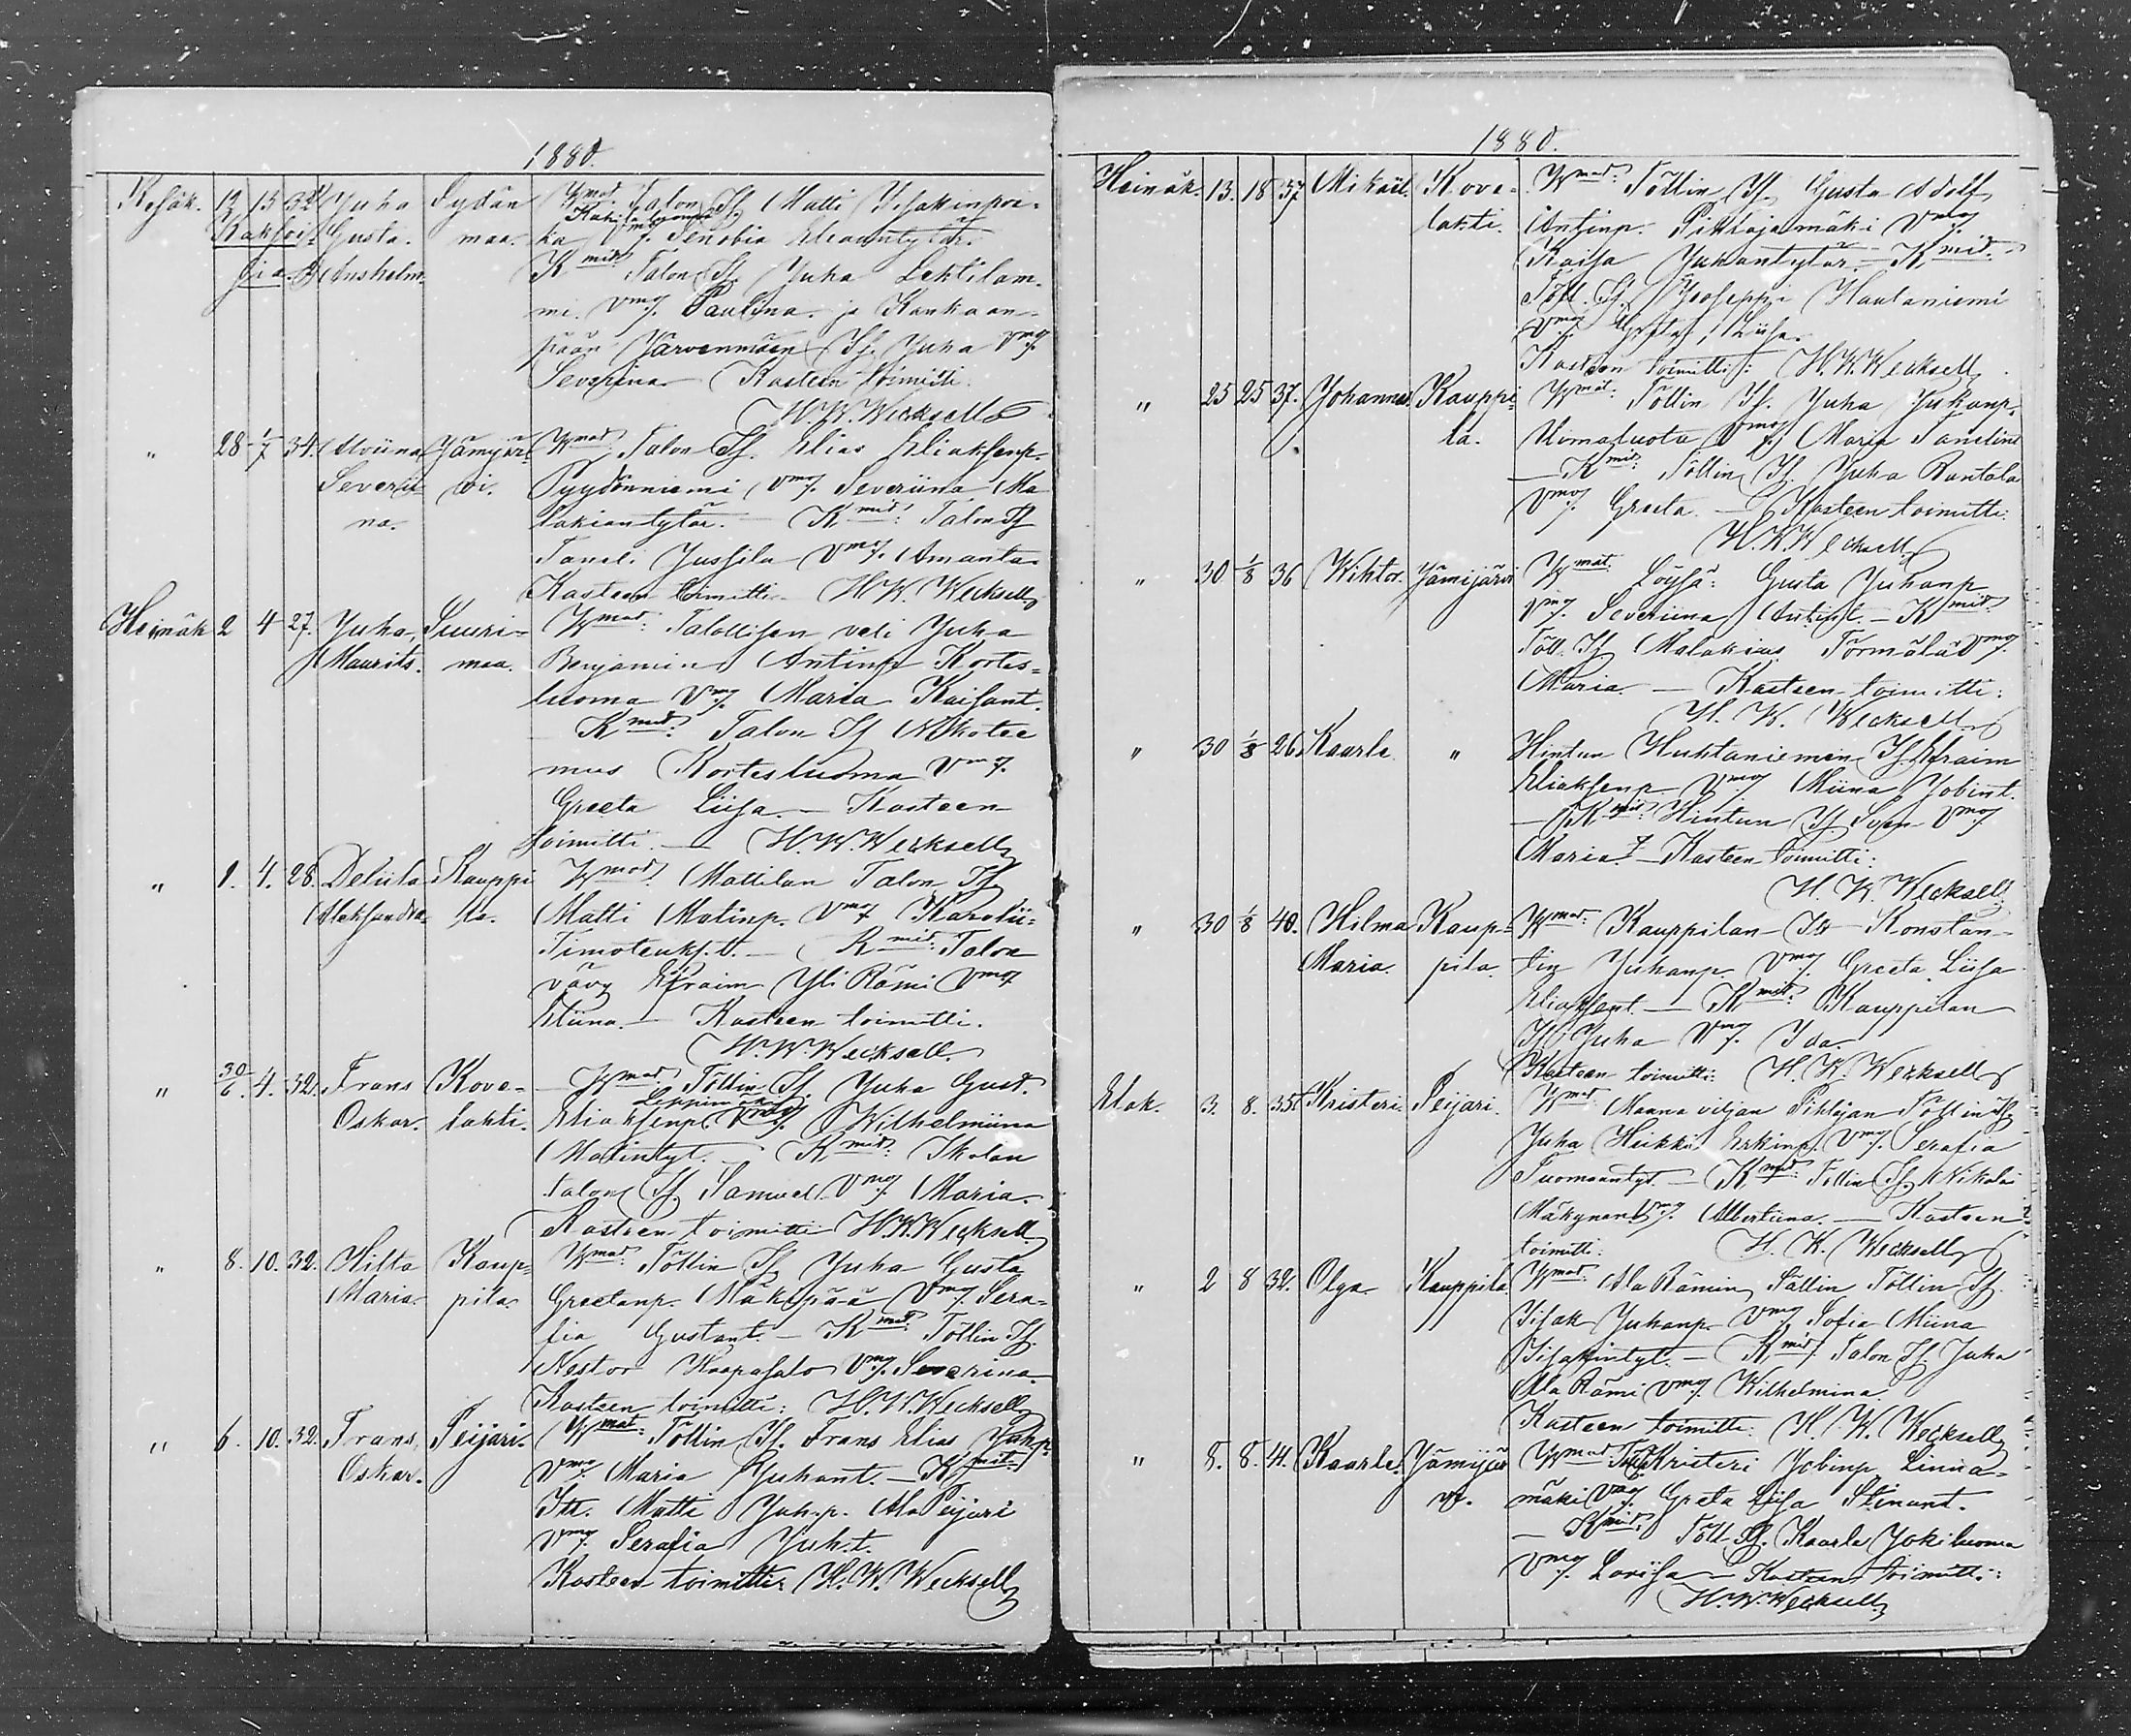 1880.
Kesäk. 12 13 32 Juha Sydän Wmat. Talon Is. Matti Isakinpoi-
Kaksoi- Gusta. maa. ka vmo. Senobia
sia. Ansholm. Kmit. Talon Is. Juha Lehtilam-
mi. Vmo. Paulina. ja Kankaan-
pään Järvenmäen Is. Juha Vmo.
Severina. Kasteen toimitti:
H. W. Wecksell
" 28 1/7 34. Alviina Jämijär- Wmat. Talon Is. Elias Eliaksenp.
Severii- wi. Pyydönniemi, Vmo. Severiina Ma-
na. lakiantytär. — Kmit. Talon Is.
Taneli Jussila Vmo. Amanta
Kasteen toimitti H. W. Wecksell
Heinäk 2 4 27. Juha Suuri- Wmat. Talollisen veli Juha
Maurits. maa. Benjamin Antinp. Kortes-
luoma Vmo. Maria Kaisant.
Kmit. Talon Is. Nikotee
mus Kortesluoma Vmo.
Greeta Liisa. — Kasteen
toimitti. — H. W. Wecksell
" 1. 4. 28. Deliila Kauppi Wmat. Mattilan Talon Is.
Aleksandra. la. Matti Matinp. Vmo. Karolii-
Timoteuks. t. — Kmit. Talon
vävy Efraim Yli Rämi Vmo.
Eliina. — Kasteen toimitti.
H. W. Wecksell.
" 30/6 4. 32. Frans Kove- Wmat. Töllin Is. Juha Gust.
Leppimäki
Oskar. lahti. Eliaksenp. Vmo. Wilhelmiina
Matintyt. — Kmit. Ikolan
Talon Is. Samuel Vmo. Maria.
Kasteen toimitti H. W. Wecksell
" 8. 10. 32. Hilta Kaup- Wmat. Töllin Is. Juha Gusta
Maria. pila. Greetanp. Mäkipää Vmo. Sera-
fia Gustant. — Kmit. Töllin Is.
Nestor Haapasalo Vmo. Severina.
Kasteen toimitti: H. W. Wecksell
" 6. 10. 32. Frans Peijari. Wmat. Töllin Is. Frans Elias Juh.p.
Oskar. Vmo. Maria Juhant. — Kmit.
Itt. Matti Juh.p. Ala Peijari
Vmo. Serafia Juh.t.
Kasteen toimitti: H. W. Wecksell
1880.
Heinäk. 13. 18 37 Mikael. Kove- Wmat. Töllin Is. Gusta Adolf
lahti. Antinp. Pihlajamäki Vmo.
Kaisa Juhantytär. — Kmit.
Töll. Is. Jooseppi Hautaniemi
Vmo. Greta Liisa.
Kasteen toimitti: H. W. Wecksell
" 25 25 37. Johannes. Kauppi- Wmat. Töllin Is. Juha Juhanp.
la. Uomaluota Vmo. Maria Tanelint
— Kmit. Töllin Is. Juha Rantala
Vmo. Greeta. — Kasteen toimitti:
H. W. Wecksell
" 30 1/8 36 Wihtor. Jämijärvi Wmat. Löysä: Gusta Juhanp.
Vmo. Severiina Antint. — Kmit.
Töll. Is. Malakias Törmälä Vmo.
Maria. — Kasteen toimitti:
H. W. Wecksell
" 30 1/8 26 Kaarle " Hintun Huhtaniemen Is. Efraim
Eliaksenp. Vmo. Miina Jobint.
— Kmit. Hintun Is. Sven Vmo.
Maria. — Kasteen toimitti:
H. W. Wecksell.
" 30 1/8 40. Hilma Kaup- Wmat. Kauppilan Is. Konstan-
Maria. pila. tin Juhanp. Vmo. Greeta Liisa
Eliaksent. — Kmit. Kauppilan
Is. Juha Vmo. Ida.
Kasteen toimitti: H. W. Wecksell
Elok. 3. 8. 35. Kristeri Peijari. Wmat. Maanviljan Pihlajan Töllin Is.
Juha Heikki Erkinp. Vmo. Serafia
Tuomaantyt. — Kmit. Töllin Is. Nikolai
Mäkynen Vmo. Albertiina. — Kasteen
toimitti. H. W. Wecksell
" 2 8 32. Olga. Kauppila Wmat. Ala Rämin Töllin Is.
Isak Juhanp. Vmo. Sofia Miina
Iisakintyt. — Kmit. Talon Is. Juha
Ala Rämi Vmo. Wilhelmina
Kasteen toimitti: H. W. Wecksell
" 8. 8. 41. Kaarle. Jämijär Wmat. Töll. Kristeri Jobinp. Linna-
vi. mäki Vmo. Greta Liisa Stinant.
— Kmit. Töll. Is. Kaarle Jokiluoma
Vmo. Loviisa — Kasteen toimitti:
H. W. Wecksell